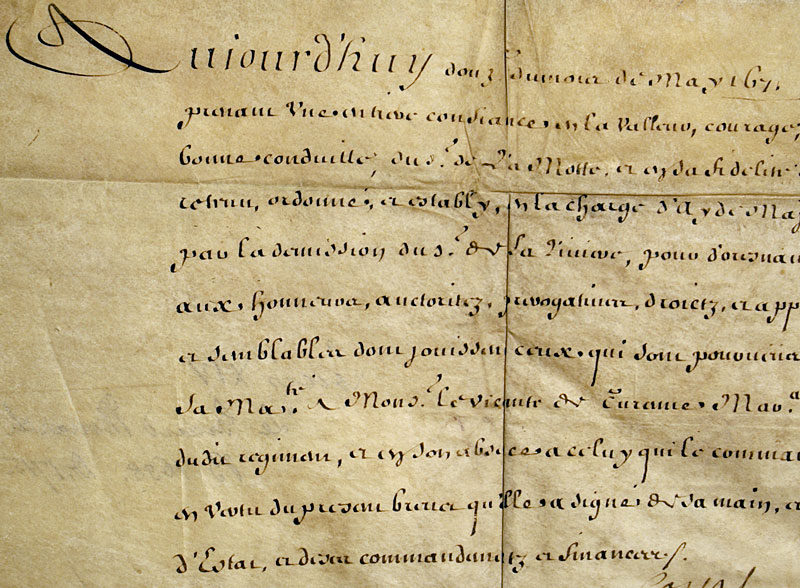 Aujourd'huy douz.e du mois de May 167
prenant Vne entiere confiance en la Valleur, courage,
bonne conduitte, du s.r de La Motte, et en sa fidelité
retenu, ordonné, et estably, en la charge d'Ayde Maj
par la demission du s.r de La Riuiere, pour d'oresnau
aux honneurs, auctoritez, prerogatiues, droictz, et app
et semblables dont jouissent ceux qui sont pourueus
Sa Ma.té A Mons.r le vicomte de Turenne Mar.a
dudit regiment, et en son absence a celuy qui le comma
en vertu du present breuet qu'elle a signé de sa main, et
d'Estat, et de ses commandementz et finances.